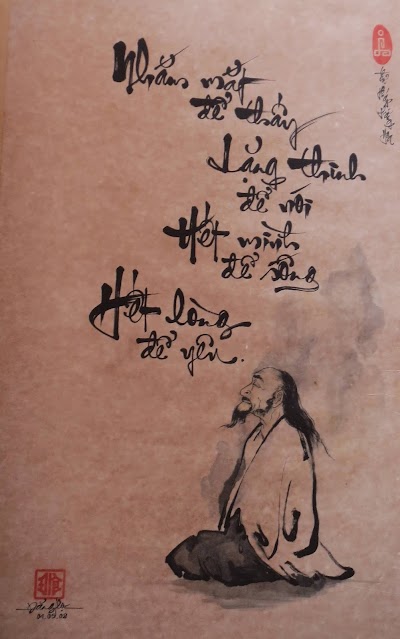 Nhắm mắt
để thấy
Lặng thinh
để nói
Hết mình
để sống
Hết lòng
để yêu.